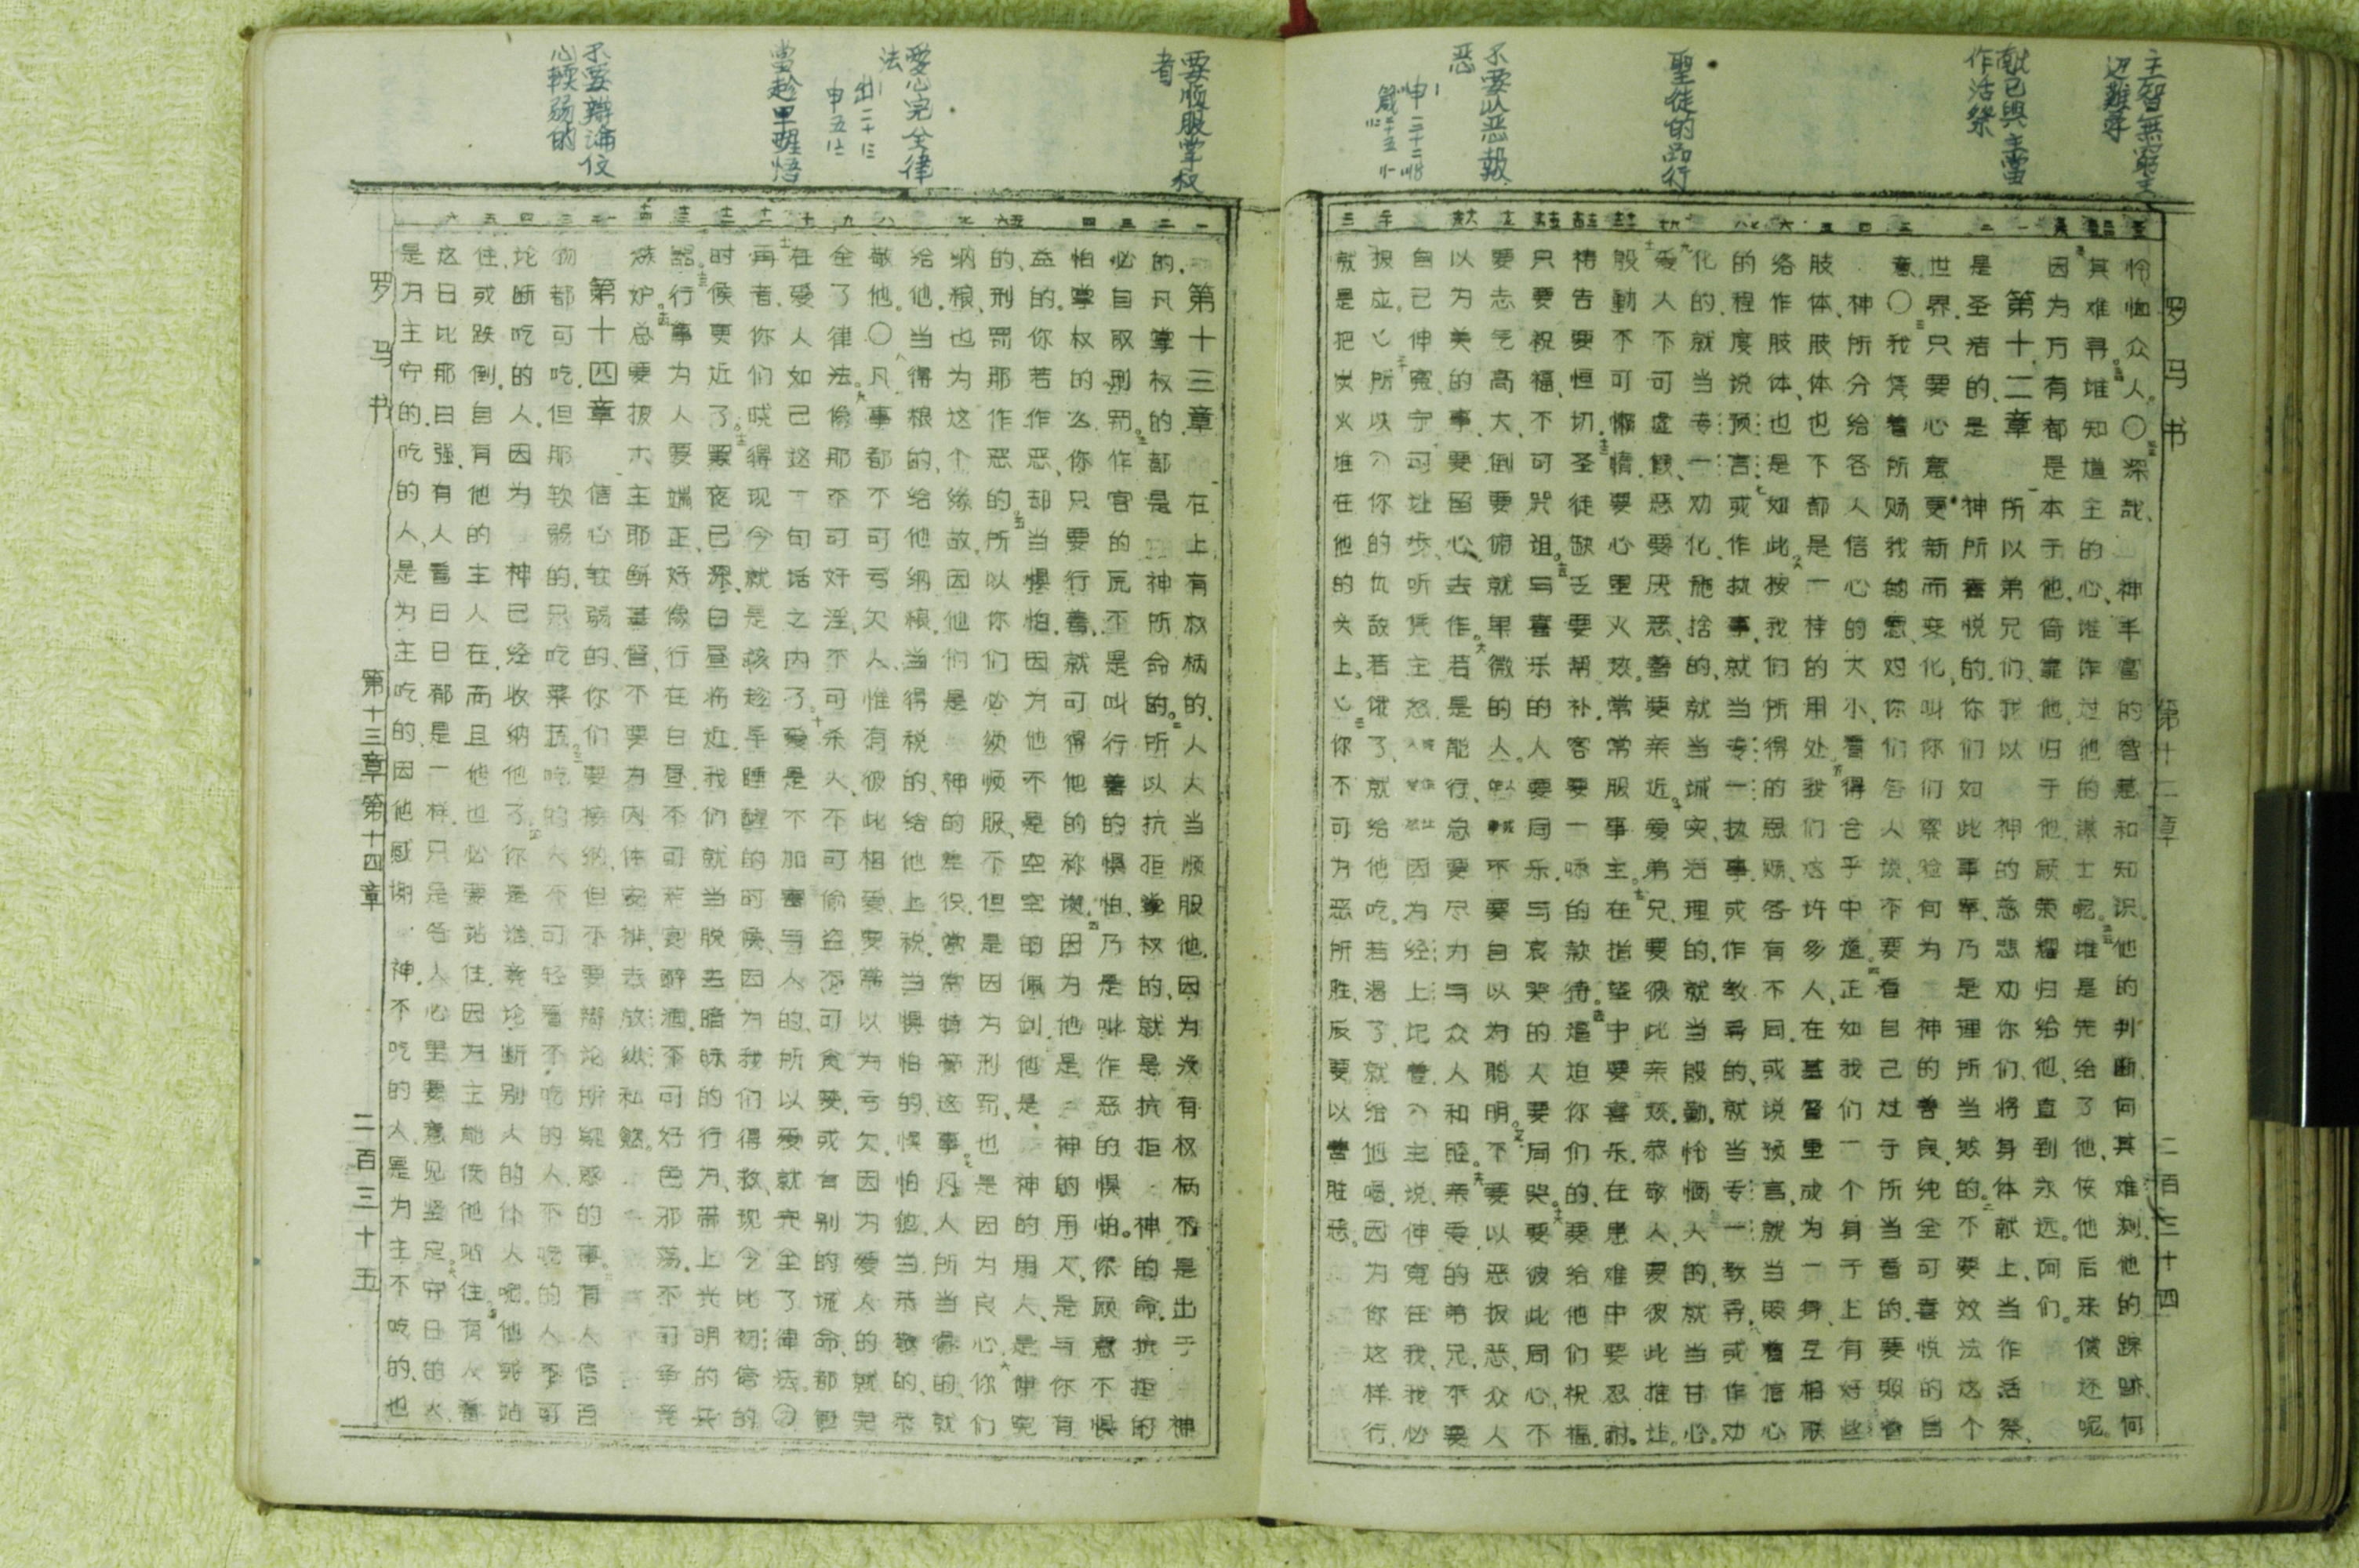 主智無窮其
迹難尋
献己與主當
作活祭
聖徒的品行
不要以恶報
恶
申三十二
箴二十五
罗马书
第十二章
二百三十四
怜恤众人。〇深哉、神丰富的智慧和知识。他的判断、何其难测、他的踪跡、何
其难寻。谁知道主的心、谁作过他的谋士呢。谁是先给了他、使他后来偿还呢。
因为万有都是本于他、倚靠他、归于他、愿荣耀归给他、直到永远。阿们。
第十二章 所以弟兄们、我以神的慈悲劝你们、将身体献上、当作活祭、
是圣洁的、是神所喜悦的、你们如此事奉、乃是理所当然的。不要效法这个
世界、只要心意更新而变化、叫你们察验何为神的善良纯全可喜悦的旨
意。〇我凭着所赐我的恩、对你们各人说、不要看自己过于所当看的、要照着
神所分给各人信心的大小、看得合乎中道。正如我们一个身子上有好些
肢体、肢体也不都是一样的用处、我们这许多人、在基督里成为一身、互相联
络作肢体、也是如此。按我们所得的恩赐、各有不同。或说预言、就当照着信心
的程度说预言、或作执事、就当专一执事、或作教导的、就当专一教导、或作劝
化的、就当专一劝化、施捨的、就当诚实、治理的、就当殷勤、怜悯人的、就当甘心。
爱人不可虚假、恶要厌恶、善要亲近。爱弟兄、要彼此亲热、恭敬人、要彼此推让。
殷勤不可懒惰、要心里火热。常常服事主。在指望中要喜乐、在患难中要忍耐。
祷告要恒切。圣徒缺乏要帮补、客要一味的款待。逼迫你们的、要给他们祝福。
只要祝福、不可咒诅。与喜乐的人要同乐、与哀哭的人要同哭。要彼此同心、不
要志气高大、倒要俯就卑微的人。不要自以为聪明。不要以恶报恶、众人
以为美的事、要留心去作。若是能行、总要尽力与众人和睦。亲爱的弟兄、不要
自己伸冤、宁可让步、听凭主怒、因为经上记着、主说、伸冤在我、我必
报应。所以你的仇敌若饿了、就给他吃、若渴了、就给他喝、因为你这样行、
就是把炭火堆在他的头上。你不可为恶所胜、反要以善胜恶。
要順服掌权
者
愛心完全律
法
出二十
申五
當趁早醒悟
不要辯論信
心輭弱的
第十三章 在上有权柄的、人人当顺服他、因为没有权柄不是出于神
的、凡掌权的都是神所命的。所以抗拒掌权的、就是抗拒神的命、抗拒的
必自取刑罚。作官的原不是叫行善的惧怕、乃是叫作恶的惧怕。你愿意不惧
怕掌权的么、你只要行善、就可得他的称讚。因为他是神的用人、是与你有
益的。你若作恶、却当惧怕、因为他不是空空的佩剑、他是神的用人、是伸冤
的、刑罚那作恶的。所以你们必须顺服、不但是因为刑罚、也是因为良心。你们
纳粮、也为这个缘故、因他们是神的差役、常常特管这事。凡人所当得的、就
给他。当得粮的、给他纳粮、当得税的、给他上税、当惧怕的、惧怕他、当恭敬的、恭
敬他。〇凡事都不可亏欠人、惟有彼此相爱、要常以为亏欠、因为爱人的就完
全了律法。像那不可奸淫、不可杀人、不可偷盗、不可贪婪、或有别的诫命、都包
在爱人如己这一句话之内了。爱是不加害与人的、所以爱就完全了律法。〇
再者、你们晓得现今就是该趁早睡醒的时候、因为我们得救、现今比初信的
时候更近了。黑夜已深、白昼将近、我们就当脱去暗昧的行为、带上光明的兵
器。行事为人要端正、好像行在白昼、不可荒宴醉酒、不可好色邪荡、不可争竞
嫉妒。总要披大主耶稣基督、不要为肉体安排、去放纵私慾。
第十四章 信心软弱的、你们要接纳、但不要辩论所疑惑的事。有人信百
物都可吃、但那软弱的、只吃菜蔬。吃的人不可轻看不吃的人、不吃的人不可
论断吃的人、因为神已经收纳他了。你是谁、竟论断别人的仆人呢。他或站
住、或跌倒、自有他的主人在、而且他也必要站住、因为主能使他站住。有人看
这日比那日强、有人看日日都是一样、只是各人心里要意见坚定。守日的人、
是为主守的、吃的人、是为主吃的、因他感谢神、不吃的人、是为主不吃的、也
罗马书
第十三章 第十四章
二百三十五